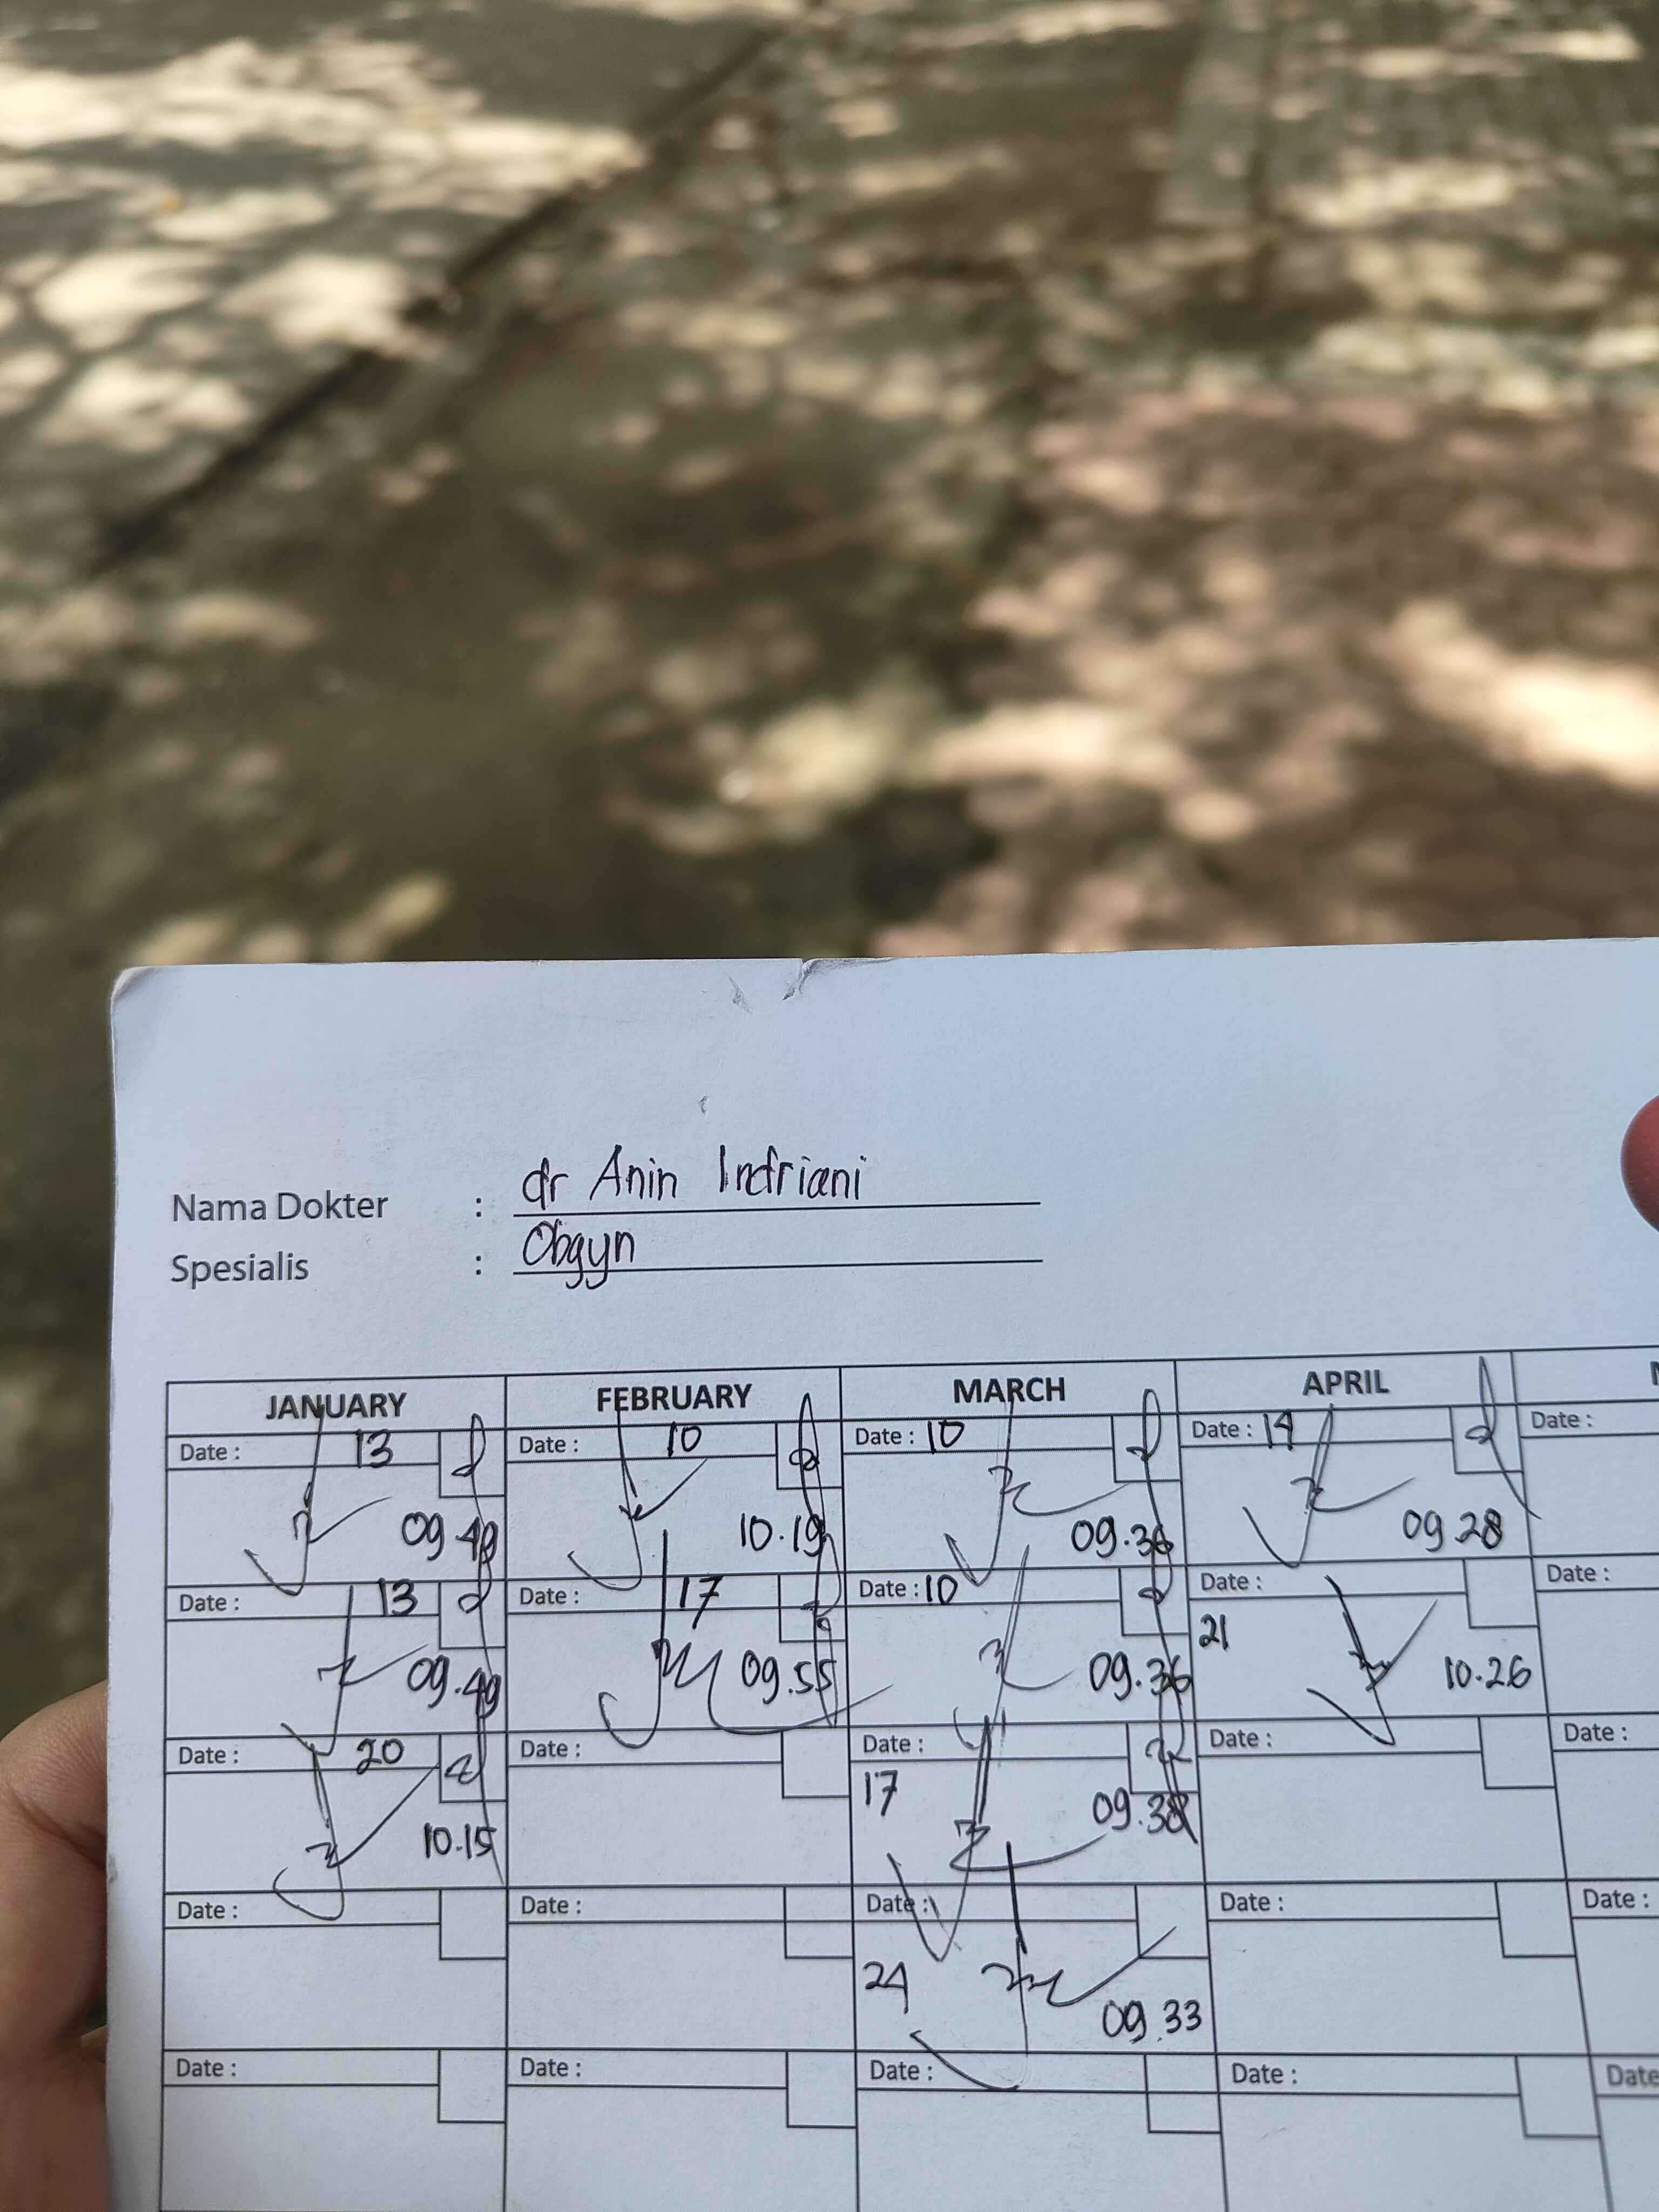 Nama Dokter : dr Anin Indriani
Spesialis : Obgyn
JANUARY FEBRUARY MARCH APRIL
Date : 13 Date : 10 Date : 10 Date : 14 Date :
09.49 10.19 09.36 09.28
Date : 13 Date : 17 Date : 10 Date : Date :
21
09.49 09.55 09.36 10.26
Date : 20 Date : Date : Date : Date :
17
10.15 09.38
Date : Date : Date : Date : Date :
24
09.33
Date : Date : Date : Date : Date